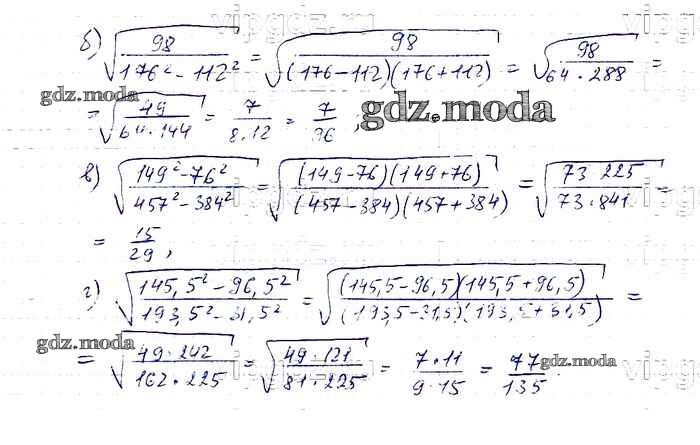 vipgdz.ru
б) √(98/(176² - 112²)) = √(98/((176-112)(176+112))) = √(98/(64·288)) =
gdz.moda
= √(49/(64·144)) = 7/(8·12) = 7/96 ;
gdz.moda
в) √((149²-76²)/(457²-384²)) = √((149-76)(149+76)/((457-384)(457+384))) = √(73 225/(73·841)) =
= 15/29 ,
г) √((145,5² - 96,5²)/(193,5² - 31,5²)) = √((145,5-96,5)(145,5+96,5)/((193,5-31,5)(193,5+31,5))) =
gdz.moda
= √(49·242/(162·225)) = √(49·121/(81·225)) = 7·11/(9·15) = 77/135
gdz.moda